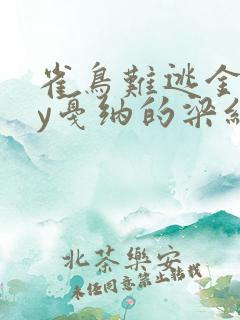 雀鳥難逃金
y戛纳的梁純
北茶樂安
未经同意禁止转载